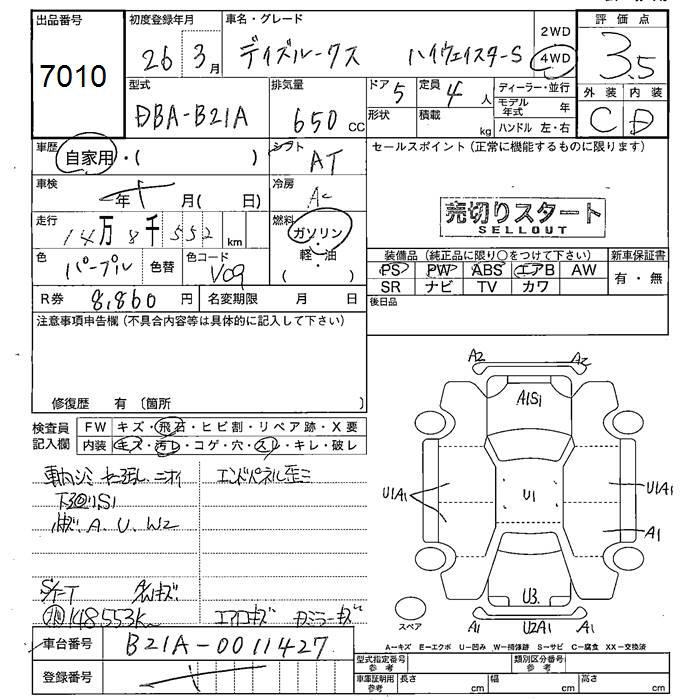 出品番号 初度登録年月 車名・グレード 2WD 評価点
7010 26 3月 デイズルークス ハイウェイスターS 4WD 3.5
型式 排気量 ドア 定員 ディーラー・並行 外装 内装
DBA-B21A 650 CC 5 4人 モデル年式 年 C D
形状 積載 kg ハンドル 左・右
車歴 自家用・( ) シフト AT セールスポイント (正常に機能するものに限ります)
車検 年 月( 日) 冷房 AC
売切りスタート
SELLOUT
走行 14万8千552 km 燃料 ガソリン・軽・油・( )
装備品 (純正品に限り○をつけて下さい) 新車保証書
色 パープル 色替 色コード V09
PS PW ABS エアB AW 有・無
SR ナビ TV カワ
R券 8,860円 名変期限 月 日 後日品
注意事項申告欄 (不具合内容等は具体的に記入して下さい)
修復歴 有 〔箇所 〕
検査員記入欄 FW キズ・飛石・ヒビ割・リペア跡・X要
内装 キズ・汚レ・コゲ・穴・スレ・キレ・破レ
ニオイ エンドパネル歪ミ
下回りS1
A.U.W2
148553K
エアロキズ
車台番号 B21A-0011427
登録番号
A2 A2
A1S1
U1A1 U1 U1A1
A1
U3
スペア A1 U2A1 A1
A-キズ E-エクボ U-凹み W-補修跡 S-サビ C-腐食 XX-交換済
型式指定番号 参考 類別区分番号 参考
車庫証明用 参考 長さ cm 幅 cm 高さ cm